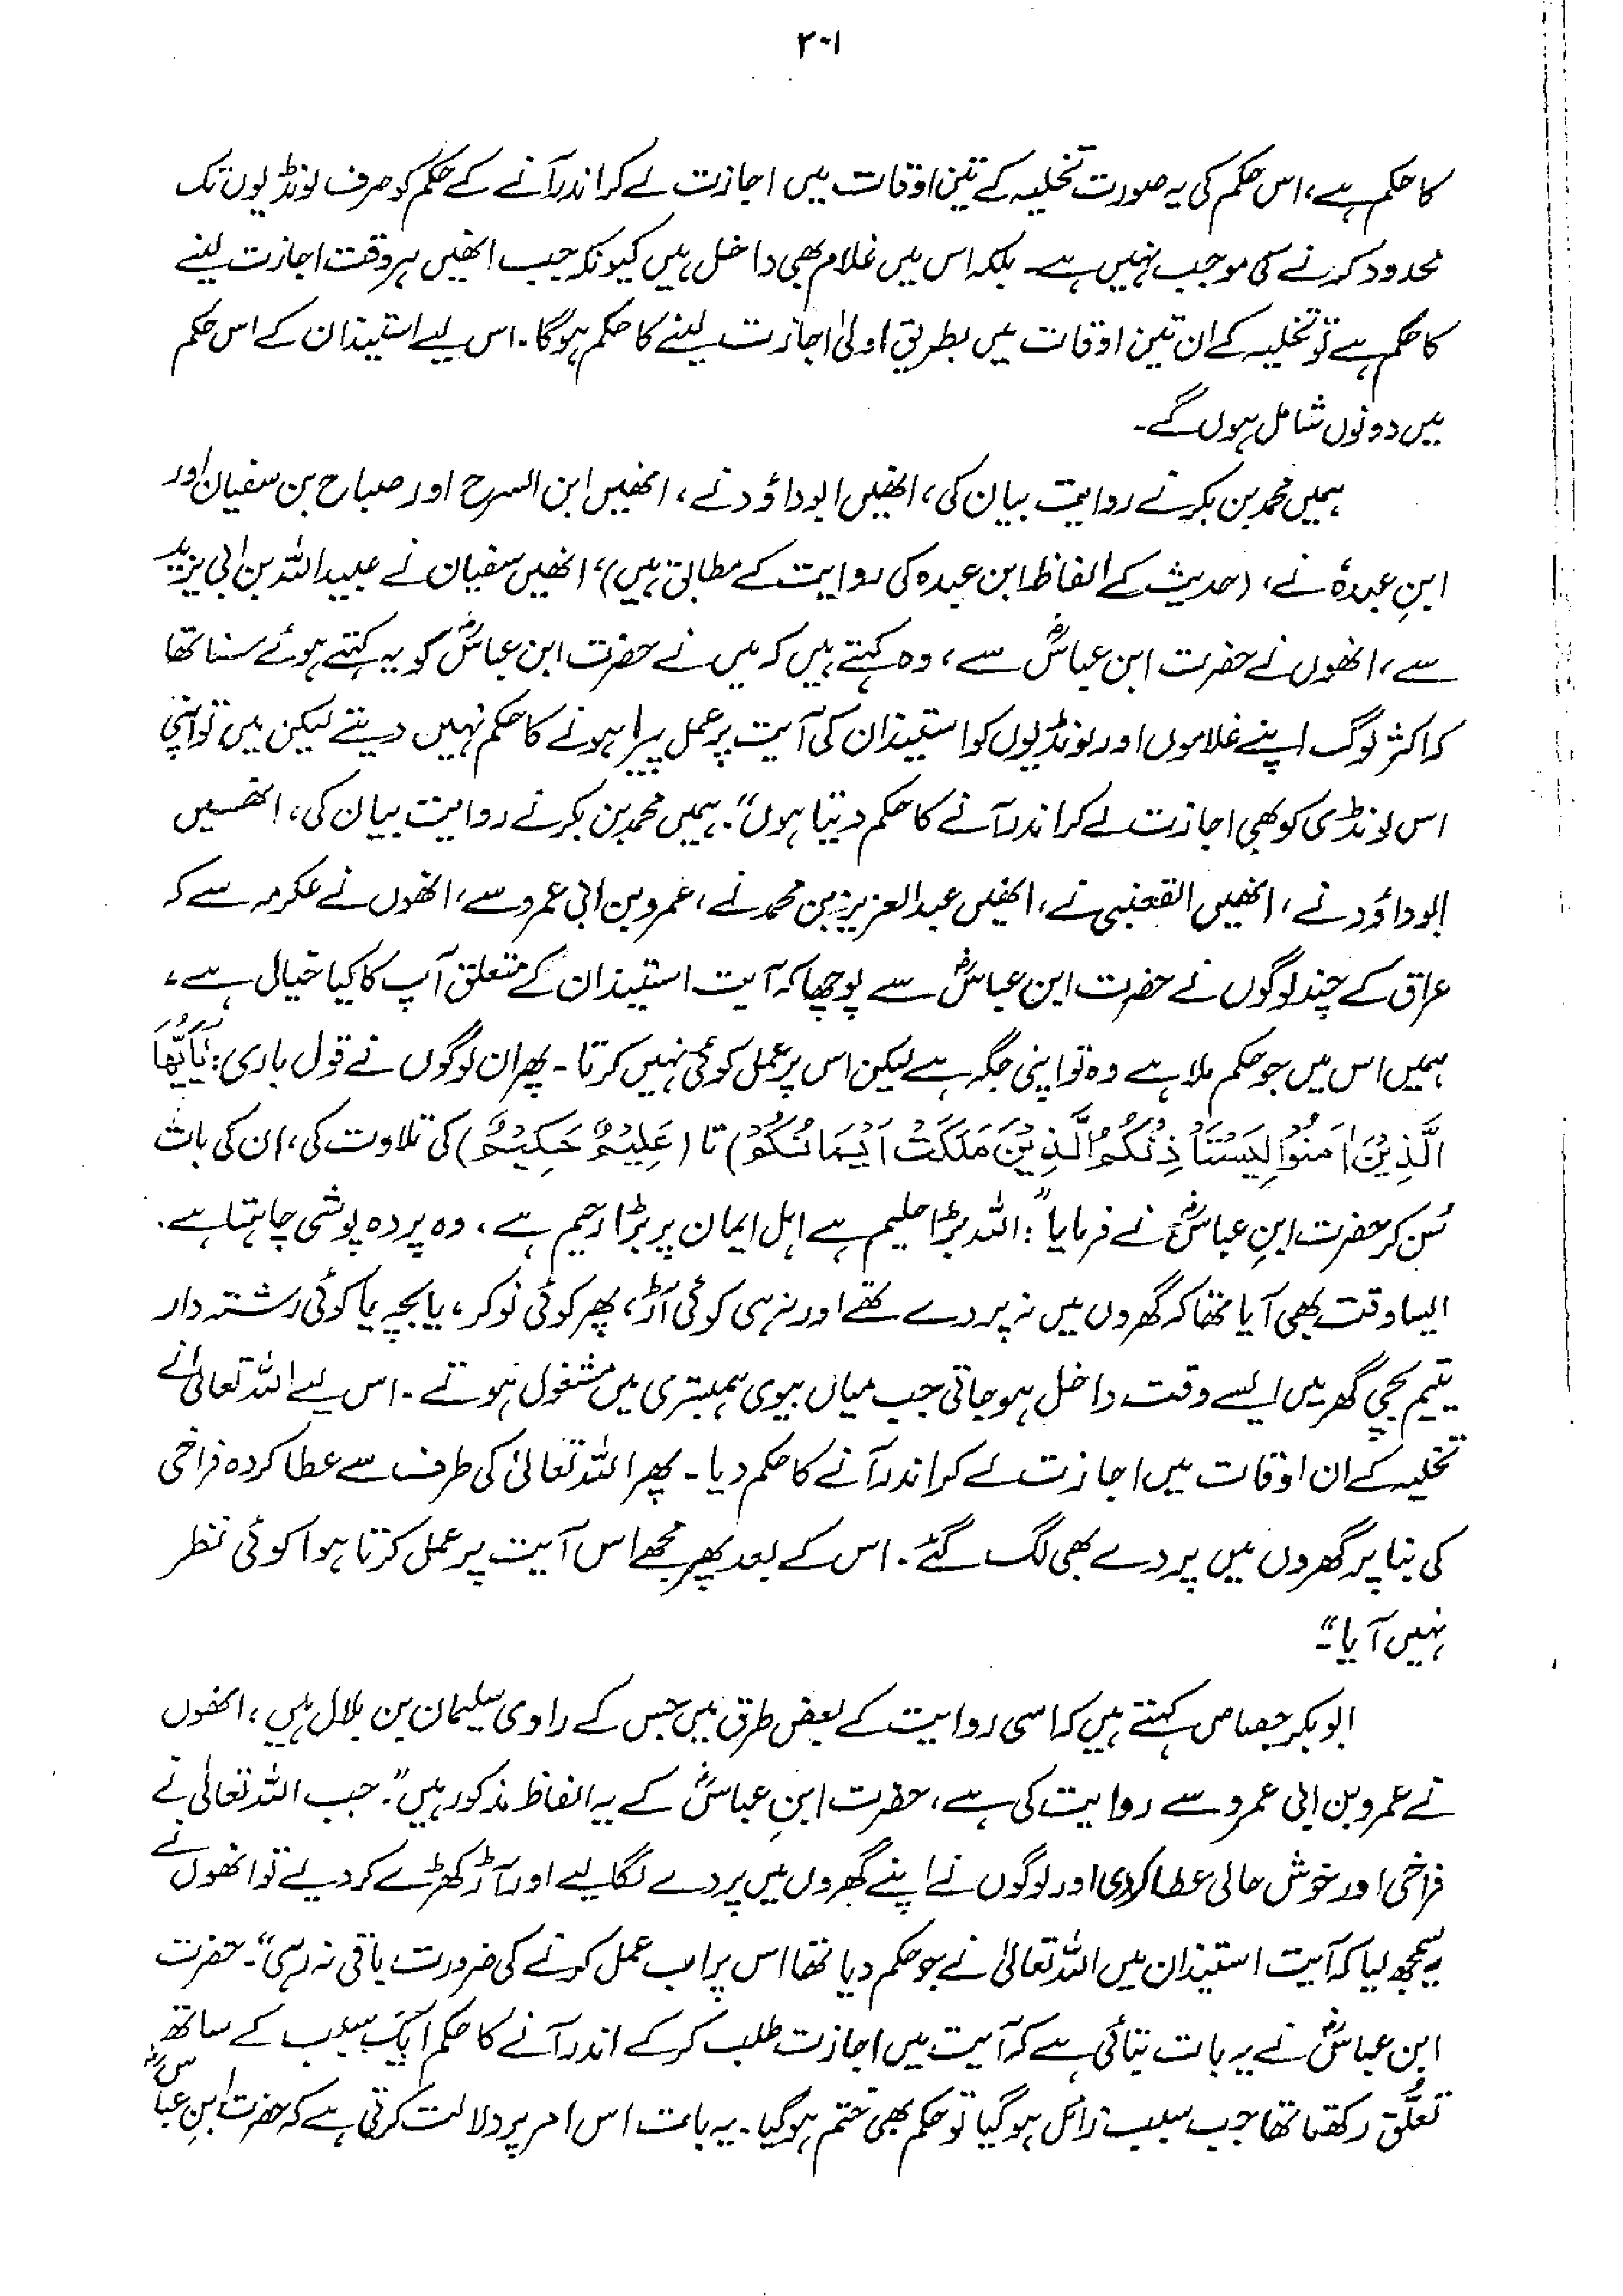 ۲۰۱
کا حکم ہے، اس حکم کی یہ صورت تخلیہ کے تین اوقات میں اجازت لے کر اندر آنے کے حکم کو صرف لونڈیوں تک
محدود کرنے کی موجب نہیں ہے۔ بلکہ اس میں غلام بھی داخل ہیں کیونکہ جب انھیں ہر وقت اجازت لینے
کا حکم ہے تو تخلیہ کے ان تین اوقات میں بطریق اولیٰ اجازت لینے کا حکم ہوگا۔ اس لیے استیذان کے اس حکم
میں دونوں شامل ہوں گے۔
ہمیں محمد بن بکر نے روایت بیان کی، انھیں ابوداؤد نے، انھیں ابن السرح اور صباح بن سفیان اور
ابنِ عبدہ نے، (حدیث کے الفاظ ابن عبدہ کی روایت کے مطابق ہیں)، انھیں سفیان نے عبیداللہ بن ابی یزید
سے، انھوں نے حضرت ابن عباسؓ سے، وہ کہتے ہیں کہ میں نے حضرت ابن عباسؓ کو یہ کہتے ہوئے سنا تھا
کہ اکثر لوگ اپنے غلاموں اور لونڈیوں کو استیذان کی آیت پر عمل پیرا ہونے کا حکم نہیں دیتے لیکن میں تو اپنی
اس لونڈی کو بھی اجازت لے کر اندر آنے کا حکم دیتا ہوں“۔ ہمیں محمد بن بکر نے روایت بیان کی، انھیں
ابوداؤد نے، انھیں القعنبی نے، انھیں عبدالعزیز بن محمد نے، عمرو بن ابی عمرو سے، انھوں نے عکرمہ سے کہ
عراق کے چند لوگوں نے حضرت ابن عباسؓ سے پوچھا کہ آیت استیذان کے متعلق آپ کا کیا خیال ہے،
ہمیں اس میں جو حکم ملا ہے وہ تو اپنی جگہ ہے لیکن اس پر عمل کوئی نہیں کرتا۔ پھر ان لوگوں نے قول باری: یٰٓاَیُّھَا
الَّذِیْنَ اٰمَنُوْا لِیَسْتَاْذِنْکُمُ الَّذِیْنَ مَلَکَتْ اَیْمَانُکُمْ) تا (عَلِیْمٌ حَکِیْمٌ) کی تلاوت کی، ان کی بات
سُن کر حضرت ابنِ عباسؓ نے فرمایا: ”اللہ بڑا حلیم ہے اہل ایمان پر بڑا رحیم ہے، وہ پردہ پوشی چاہتا ہے۔
ایسا وقت بھی آیا تھا کہ گھروں میں نہ پردے تھے اور نہ ہی کوئی آڑ، پھر کوئی نوکر، یا بچہ یا کوئی رشتہ دار
یتیم بچی گھر میں ایسے وقت داخل ہو جاتی جب میاں بیوی ہمبستری میں مشغول ہوتے۔ اس لیے اللہ تعالیٰ نے
تخلیہ کے ان اوقات میں اجازت لے کر اندر آنے کا حکم دیا۔ پھر اللہ تعالیٰ کی طرف سے عطا کردہ فراخی
کی بنا پر گھروں میں پردے بھی لگ گئے۔ اس کے بعد پھر مجھے اس آیت پر عمل کرتا ہوا کوئی نظر
نہیں آیا“۔
ابوبکر جصاص کہتے ہیں کہ اسی روایت کے بعض طرق میں جس کے راوی سلیمان بن بلال ہیں، انھوں
نے عمرو بن ابی عمرو سے روایت کی ہے، حضرت ابنِ عباسؓ کے یہ الفاظ مذکور ہیں”۔ جب اللہ تعالیٰ نے
فراخی اور خوش حالی عطا کر دی اور لوگوں نے اپنے گھروں میں پردے لگا لیے اور آڑ کھڑے کر دیے تو انھوں نے
یہ سمجھ لیا کہ آیت استیذان میں اللہ تعالیٰ نے جو حکم دیا تھا اس پر اب عمل کرنے کی ضرورت باقی نہ رہی“۔ حضرت
ابن عباسؓ نے یہ بات بتائی ہے کہ آیت میں اجازت طلب کر کے اندر آنے کا حکم ایک سبب کے ساتھ
تعلّق رکھتا تھا جب سبب زائل ہو گیا تو حکم بھی ختم ہو گیا۔ یہ بات اس امر پر دلالت کرتی ہے کہ حضرت ابنِ عباسؓ